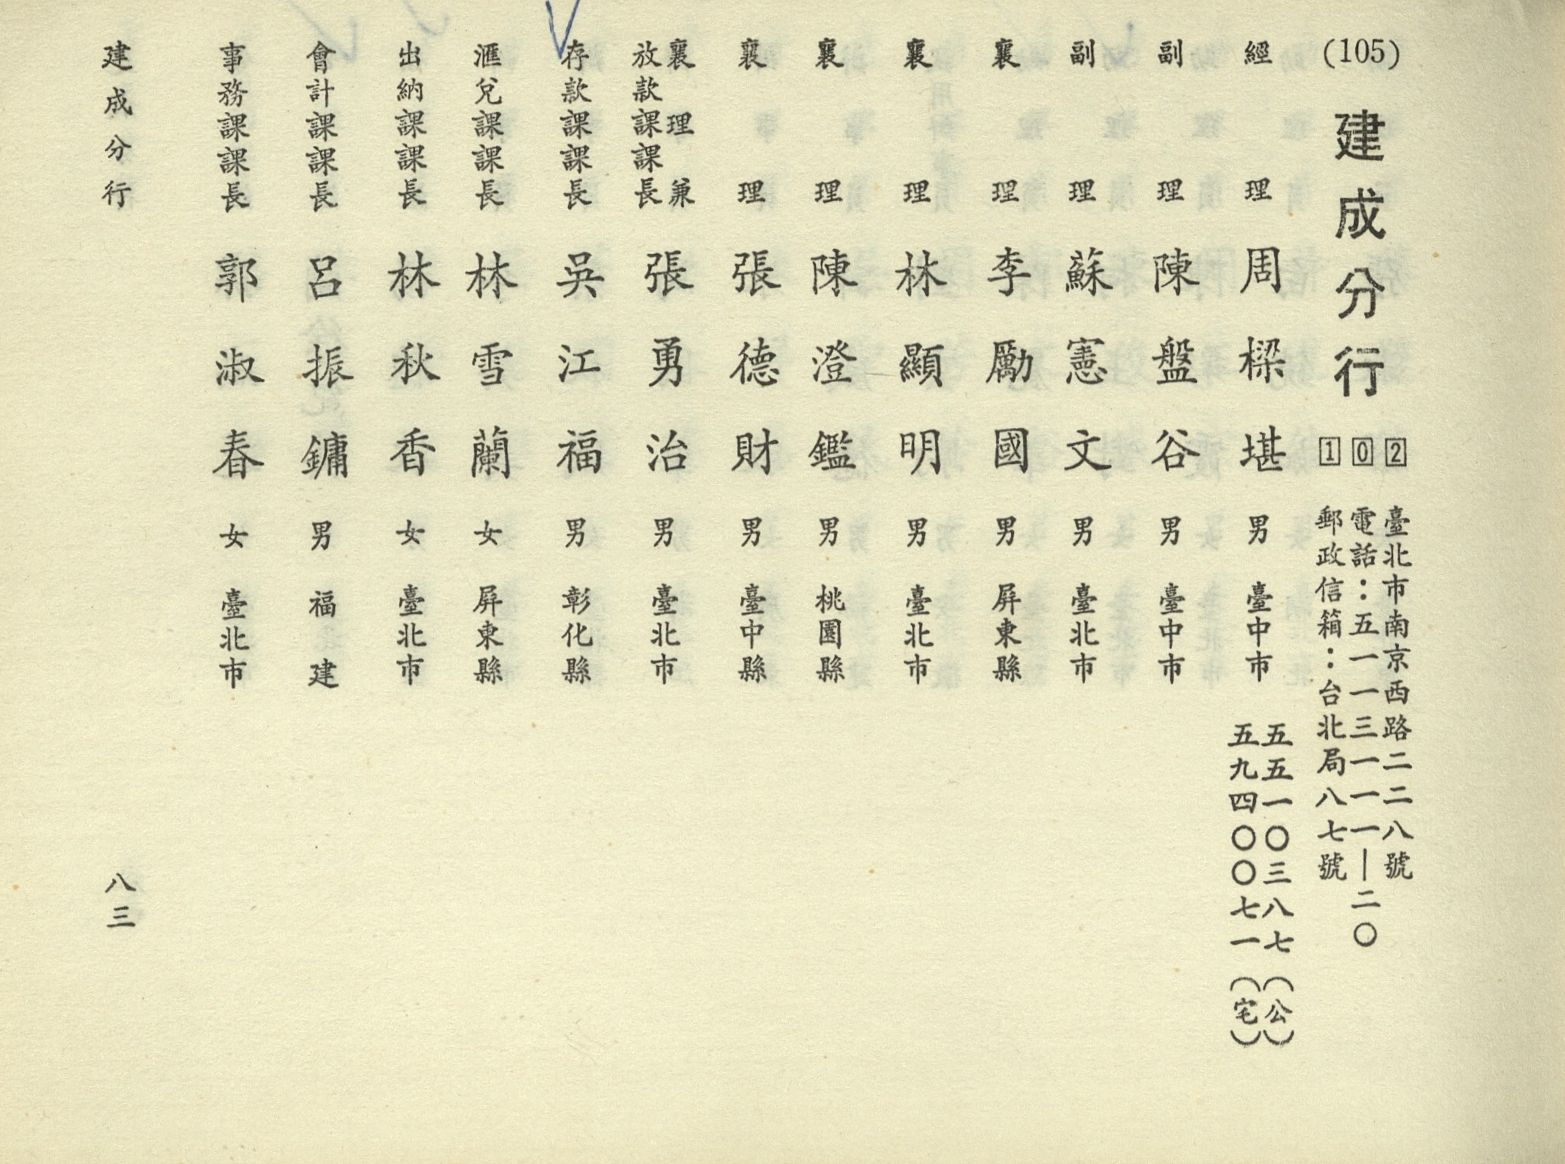 (105)
建成分行
①⓪②
臺北市南京西路二二八號
電話：五一一三一一一—二〇
郵政信箱：台北局八七號
經理 周樑堪 男 臺中市 五五一〇三八七（公）
五九四〇〇七一（宅）
副理 陳盤谷 男 臺中市
副理 蘇憲文 男 臺北市
襄理 李勵國 男 屏東縣
襄理 林顯明 男 臺北市
襄理 陳澄鑑 男 桃園縣
襄理 張德財 男 臺中縣
襄理兼
放款課課長 張勇治 男 臺北市
存款課課長 吳江福 男 彰化縣
滙兌課課長 林雪蘭 女 屏東縣
出納課課長 林秋香 女 臺北市
會計課課長 呂振鏞 男 福建
事務課課長 郭淑春 女 臺北市
建成分行
八三